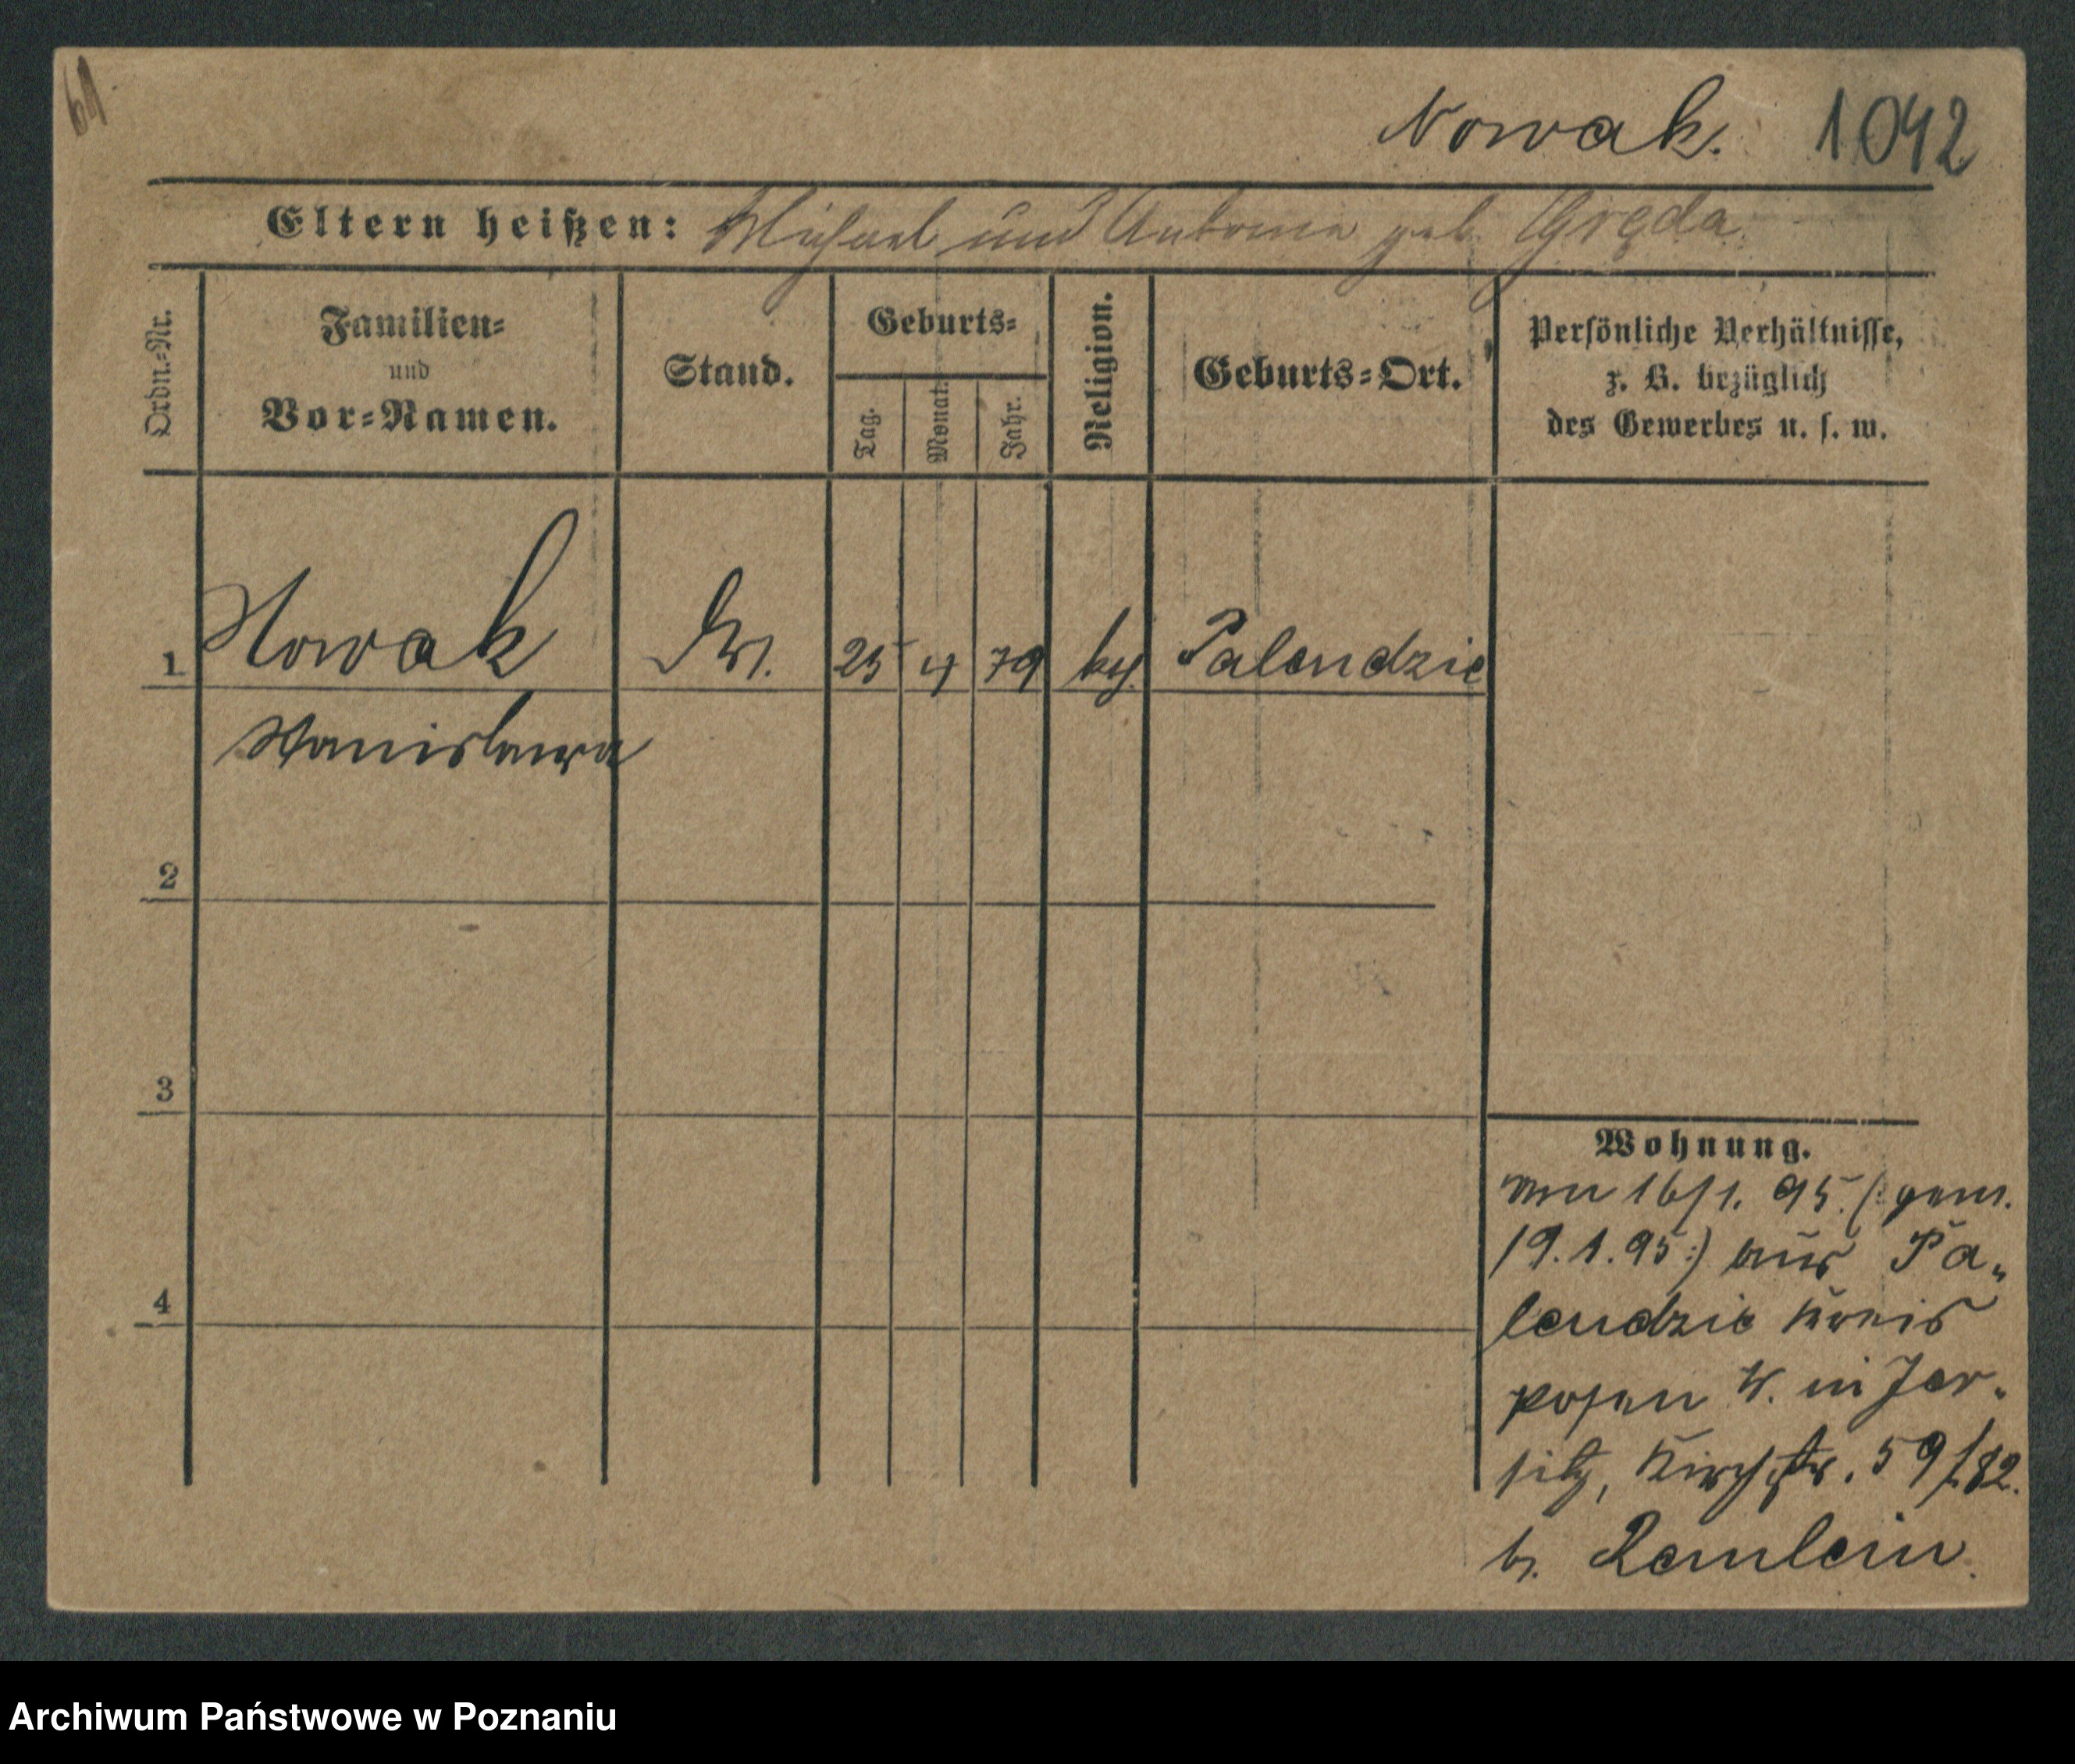 61
Nowak. 1042
Eltern heißen: Michael und Antonie geb. Gręda
Ordn.-Nr.
Familien-
und
Vor-Namen.
Stand.
Geburts-
Tag.
Monat.
Jahr.
Religion.
Geburts-Ort.
Persönliche Verhältnisse,
z. B. bezüglich
des Gewerbes u. s. w.
1 Nowak 25 4 79 kth. Palendzie
Stanislawa
2
3
4
Wohnung.
von 16/1. 95. (: gem.
19. 1. 95 :) aus Pa-
lendzie Kreis
Posen W. in Jer-
sitz, Kirchstr. 59/82.
b. Remlein.
Archiwum Państwowe w Poznaniu